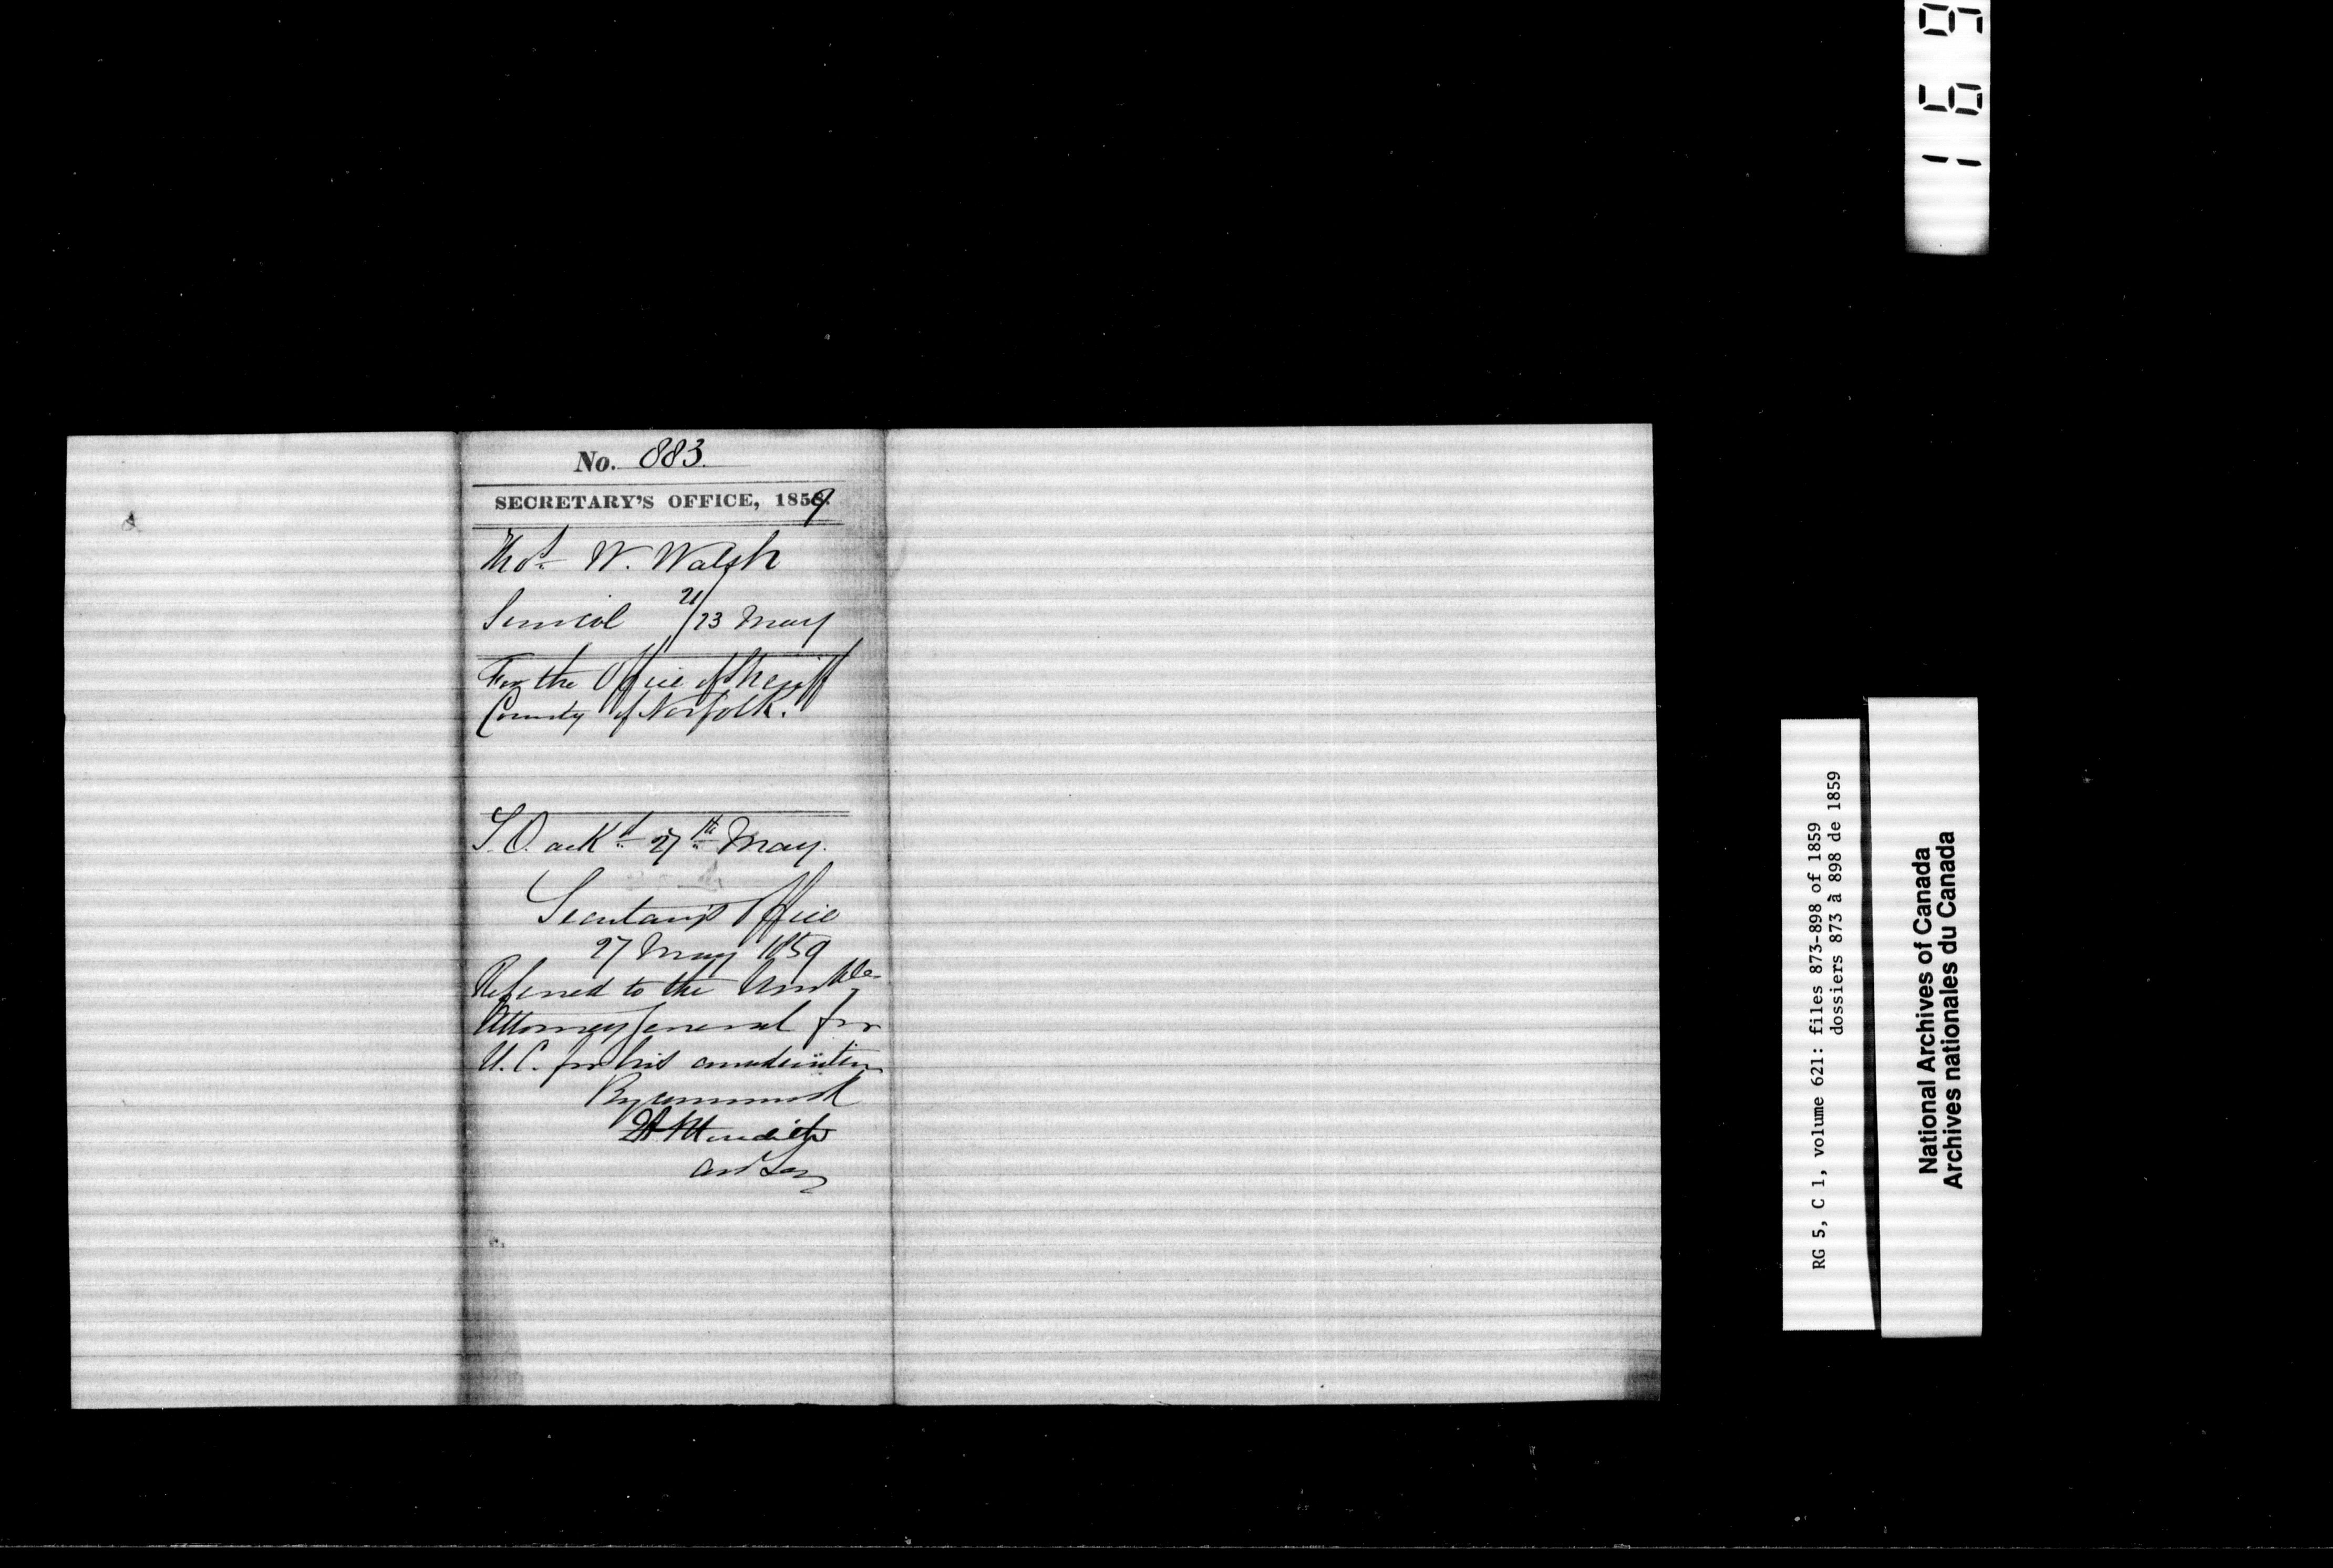 No. 883.
SECRETARY'S OFFICE, 1859.
Thos. W. Walsh
Simcoe 21/23 May
For the Office of Sheriff
County of Norfolk.
S.O. ackd. 27th. May.
Secretary's Office
27 May 1859
Referred to the Honble
Attorney General for
U.C. for his consideration
By command
E A Meredith
Asst Secy
169
RG 5, C 1, volume 621: files 873-898 of 1859
dossiers 873 à 898 de 1859
National Archives of Canada
Archives nationales du Canada